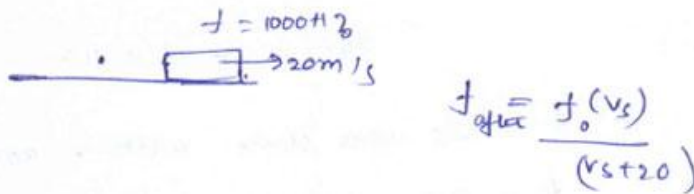 f = 1000Hz
→20m/s
f after = f₀ (vs)
(vs+20)